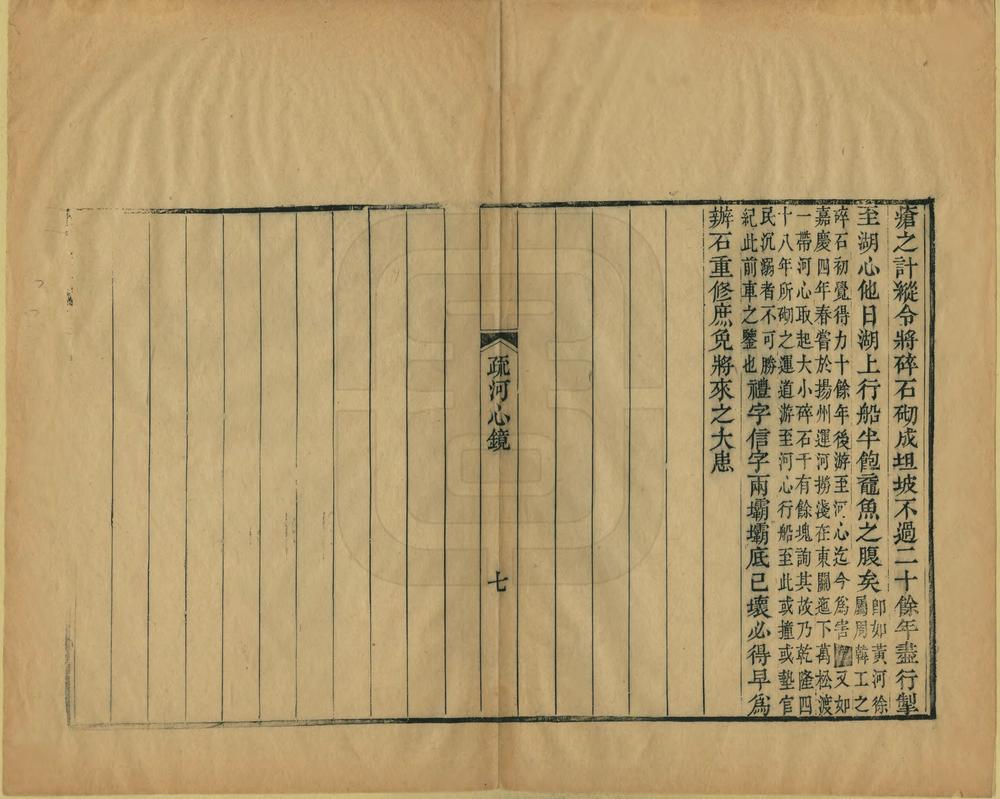 瘡之計縱令將碎石砌成坦坡不過二十餘年盡行掣
至湖心他日湖上行船半飽黿魚之腹矣
卽如黃河徐
屬周韓工之
碎石初覺得力十餘年後游至河心迄今爲害又如
嘉慶四年春嘗於揚州運河撈淺在東關迤下萬松渡
一帶河心取起大小碎石千有餘塊詢其故乃乾隆四
十八年所砌之運道游至河心行船至此或撞或墊官
民沉溺者不可勝
紀此前車之鑒也
禮字信字兩壩壩底已壞必得早爲
辦石重修庶免將來之大患
疏河心鏡
七